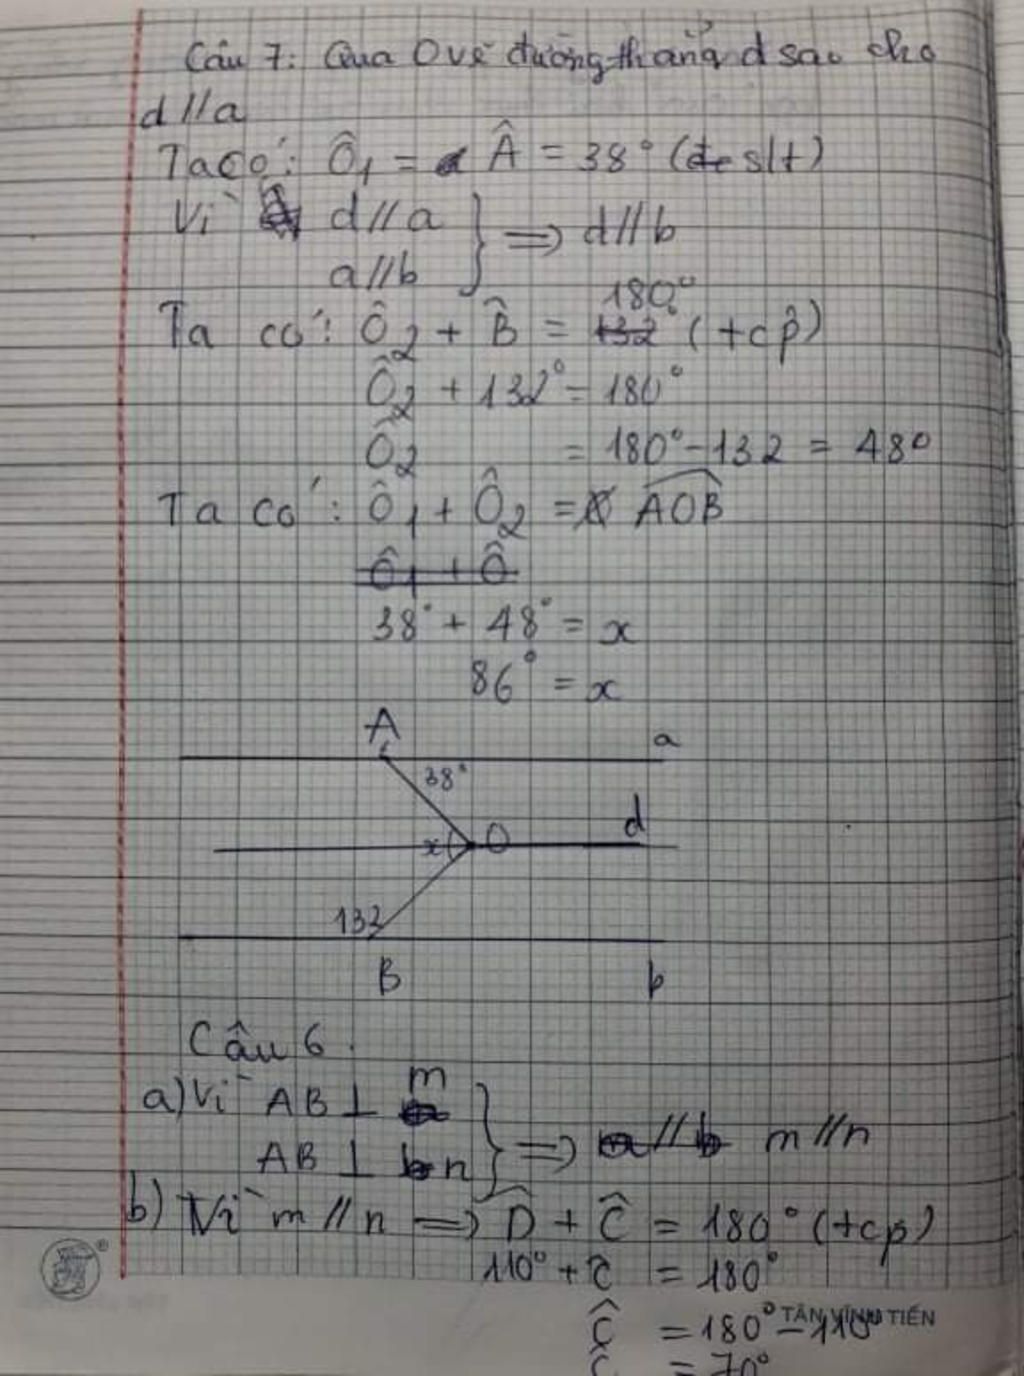 Câu 7: Qua O vẽ đường thẳng d sao cho
d // a
Ta có: Ô1 = Â = 38° (slt)
Vì d // a
a // b } => d // b
Ta có: Ô2 + B̂ = 180° (tcp)
Ô2 + 132° = 180°
Ô2 = 180° - 132 = 48°
Ta có: Ô1 + Ô2 = AOB
Ô1 + Ô
38° + 48° = x
86° = x
A
a
38°
d
x
O
132
B
b
Câu 6.
a) Vì AB ⊥ m
AB ⊥ n } => m // n
b) Vì m // n => D̂ + Ĉ = 180° (tcp)
110° + Ĉ = 180°
Ĉ = 180° - 110°
TÂN VĨNH TIẾN
Ĉ = 70°